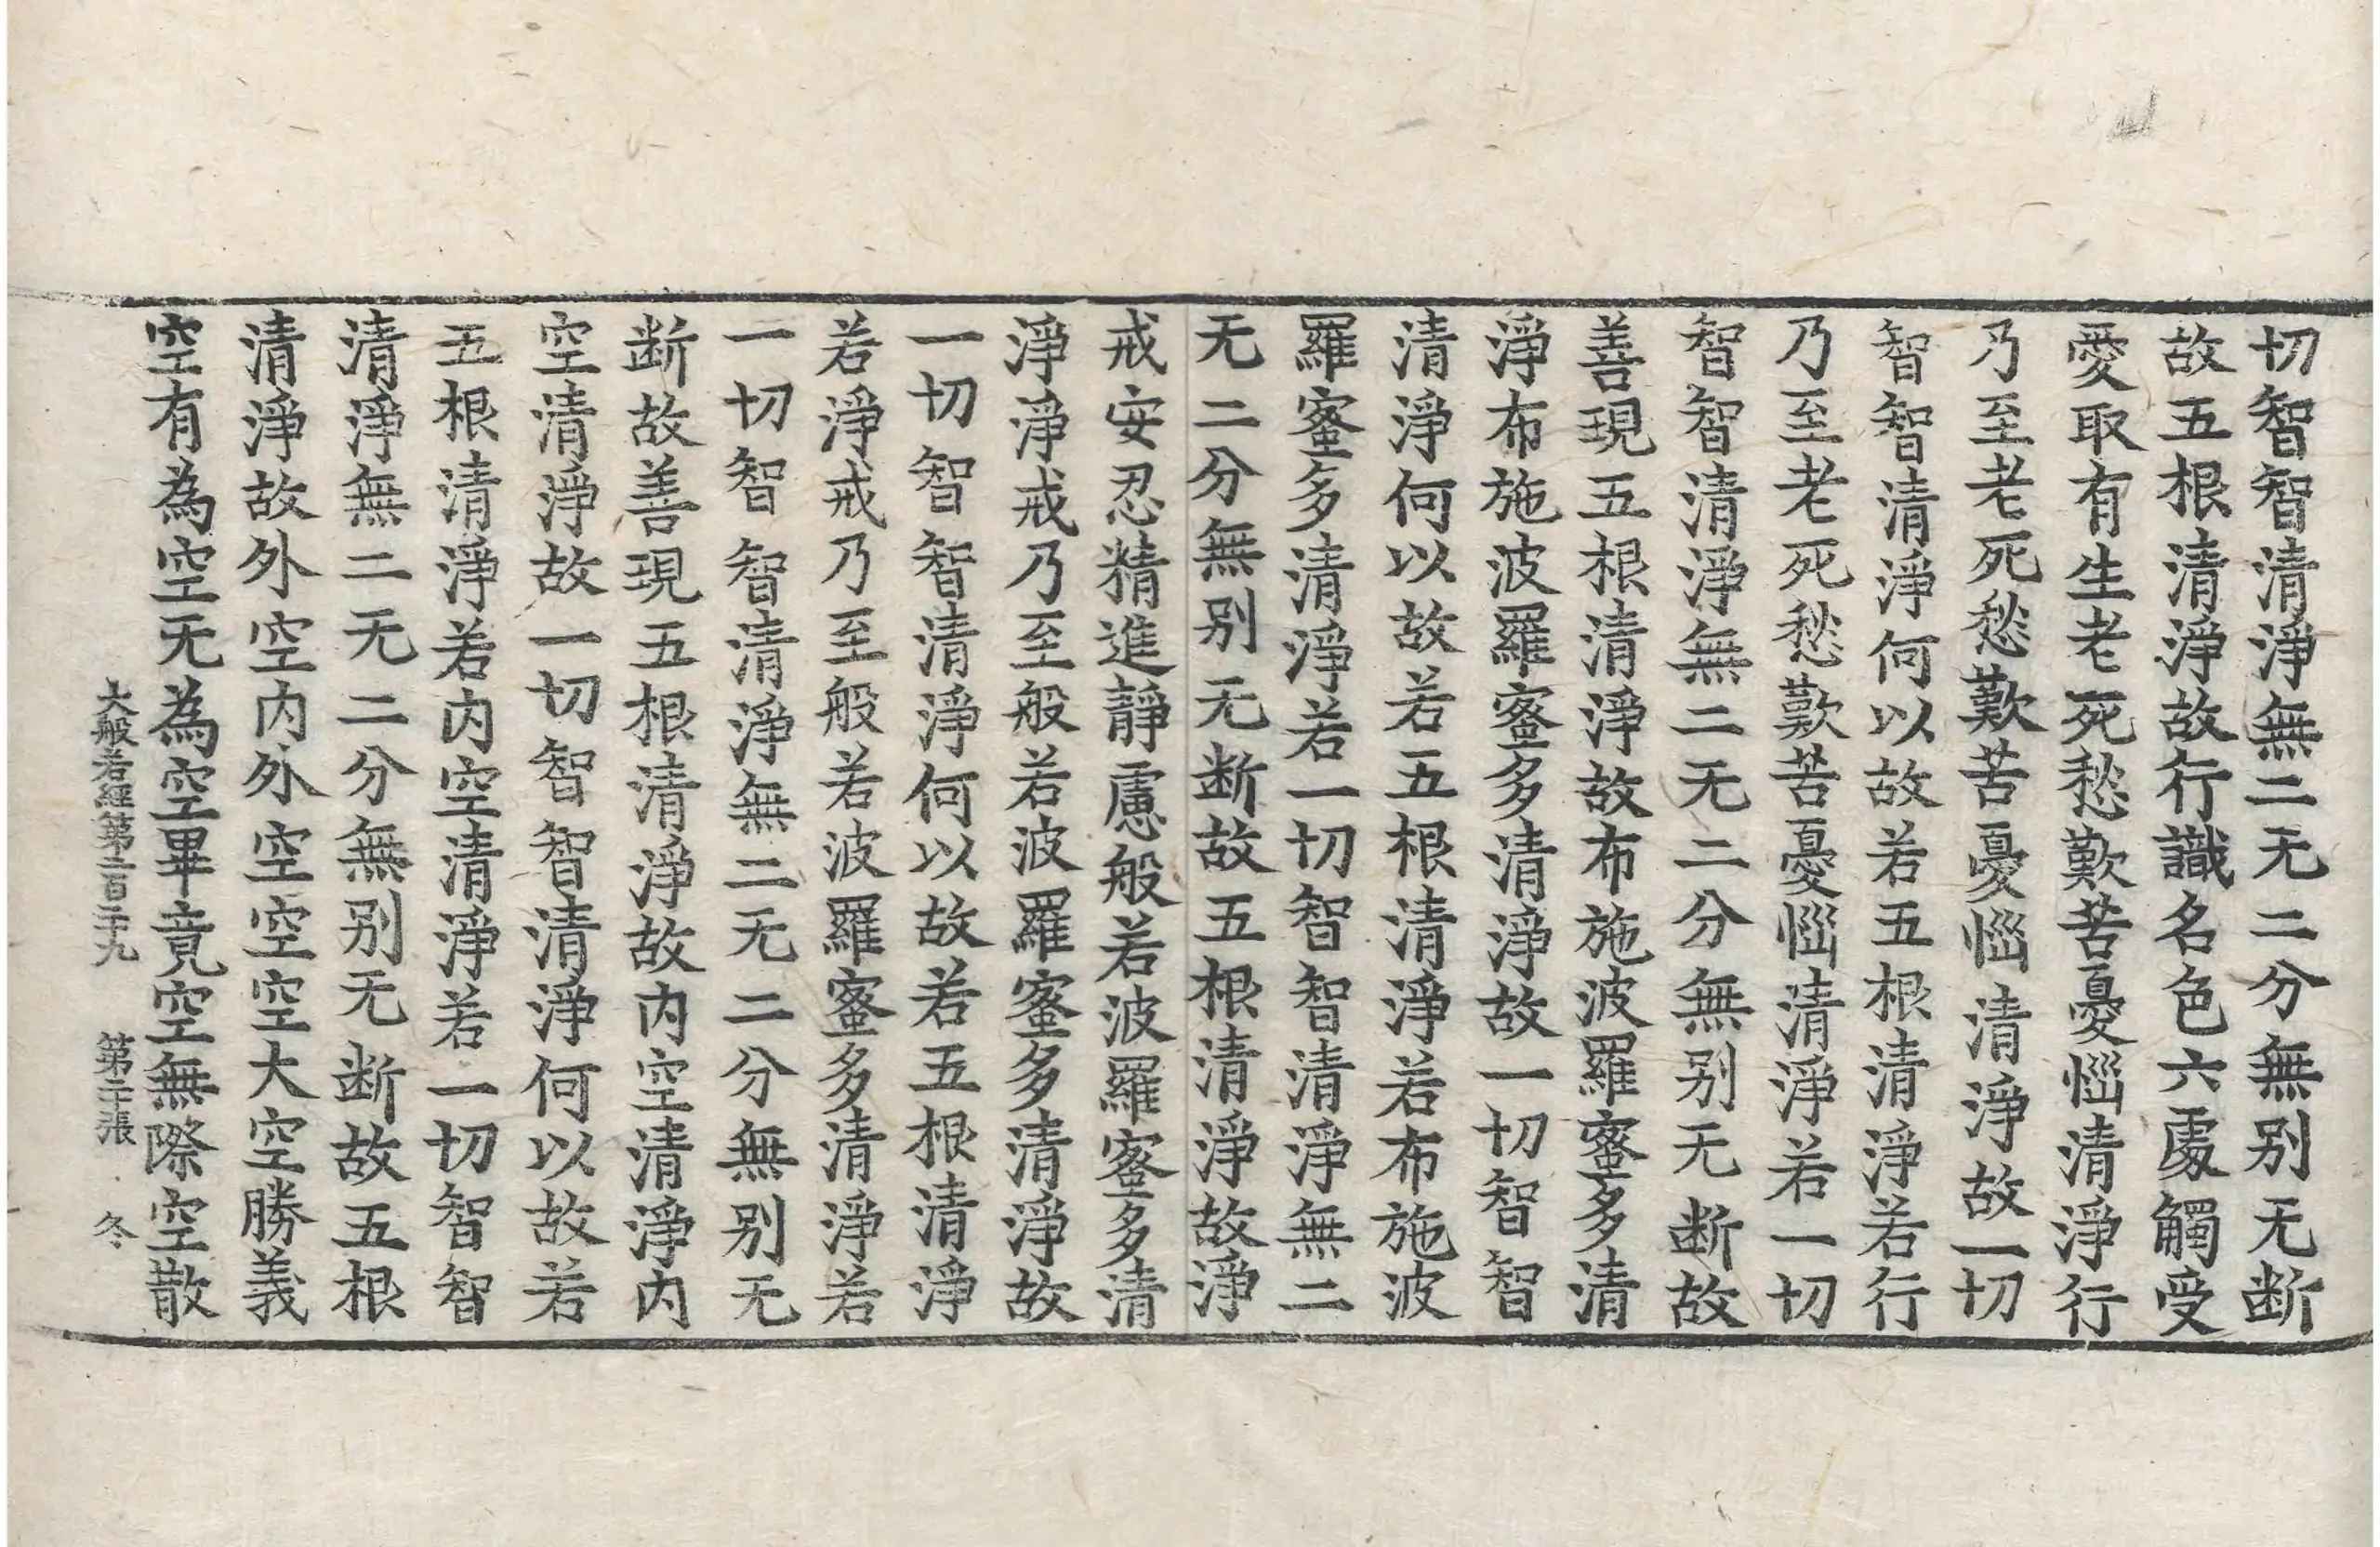 切智智清淨無二无二分無别无断
故五根清淨故行識名色六處觸受
愛取有生老死愁歎苦憂惱清淨行
乃至老死愁歎苦憂惱清淨故一切
智智清淨何以故若五根清淨若行
乃至老死愁歎苦憂惱清淨若一切
智智清淨無二无二分無别无断故
善現五根清淨故布施波羅蜜多清
淨布施波羅蜜多清淨故一切智智
清淨何以故若五根清淨若布施波
羅蜜多清淨若一切智智清淨無二
无二分無别无断故五根清淨故淨
戒安忍精進靜慮般若波羅蜜多清
淨淨戒乃至般若波羅蜜多清淨故
一切智智清淨何以故若五根清淨
若淨戒乃至般若波羅蜜多清淨若
一切智智清淨無二无二分無别无
断故善現五根清淨故内空清淨内
空清淨故一切智智清淨何以故若
五根清淨若内空清淨若一切智智
清淨無二无二分無别无断故五根
清淨故外空内外空空空大空勝義
空有為空无為空畢竟空無際空散
大般若經第二百二十九 第二十張 冬